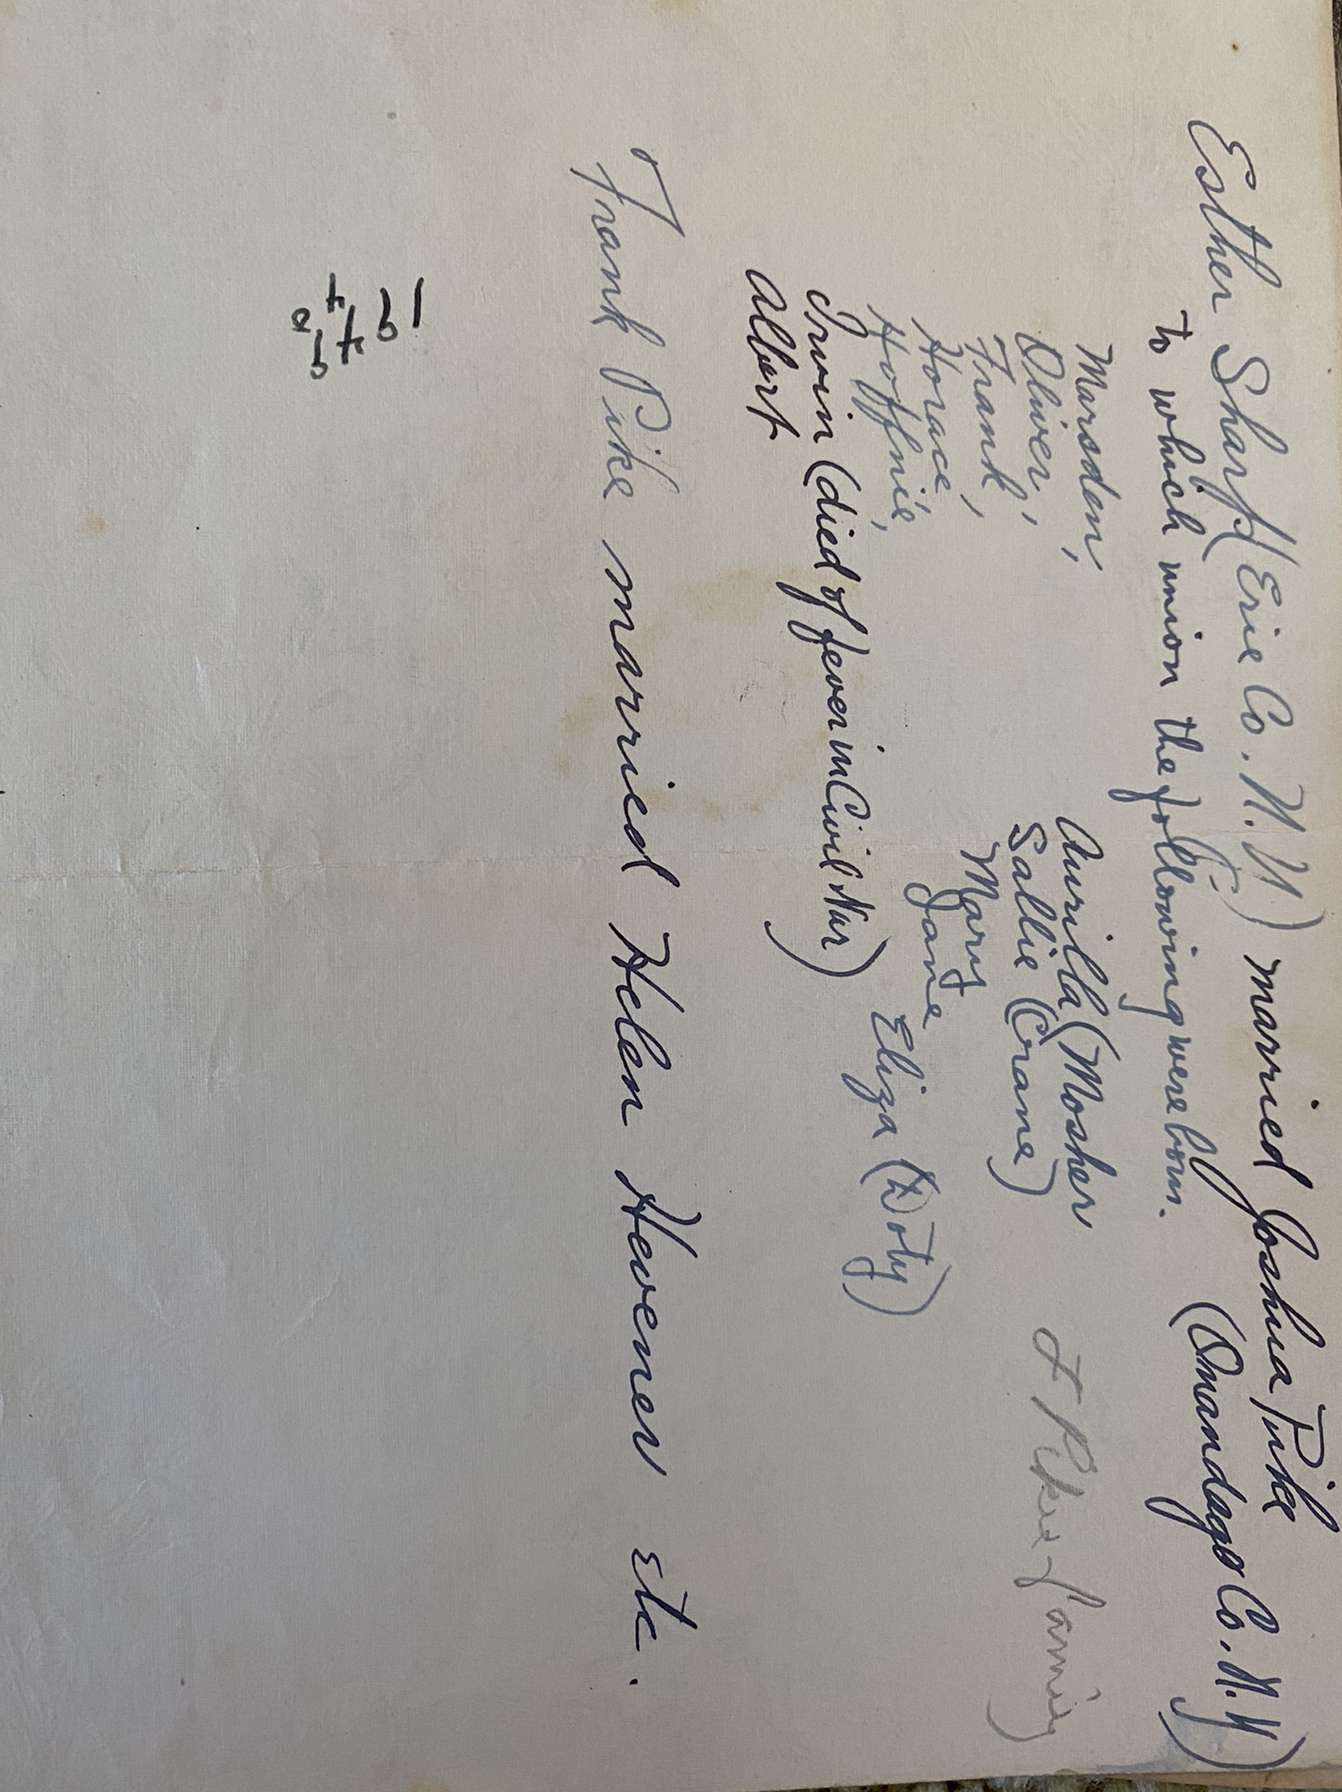 Esther Sharp (Erie Co. N.Y.) married Joshua Pike
(Onandago Co. N.Y)
to which union the following were born.
Marsden,
Oliver,
Frank,
Horace,
Hoffnie,
Irwin (died of fever in Civil War)
Albert
Aurilla (Mosher
Sallie (Crane)
Mary
Jane
Eliza (Doty)
& Pike family)
Frank Pike married Helen Hevener etc.